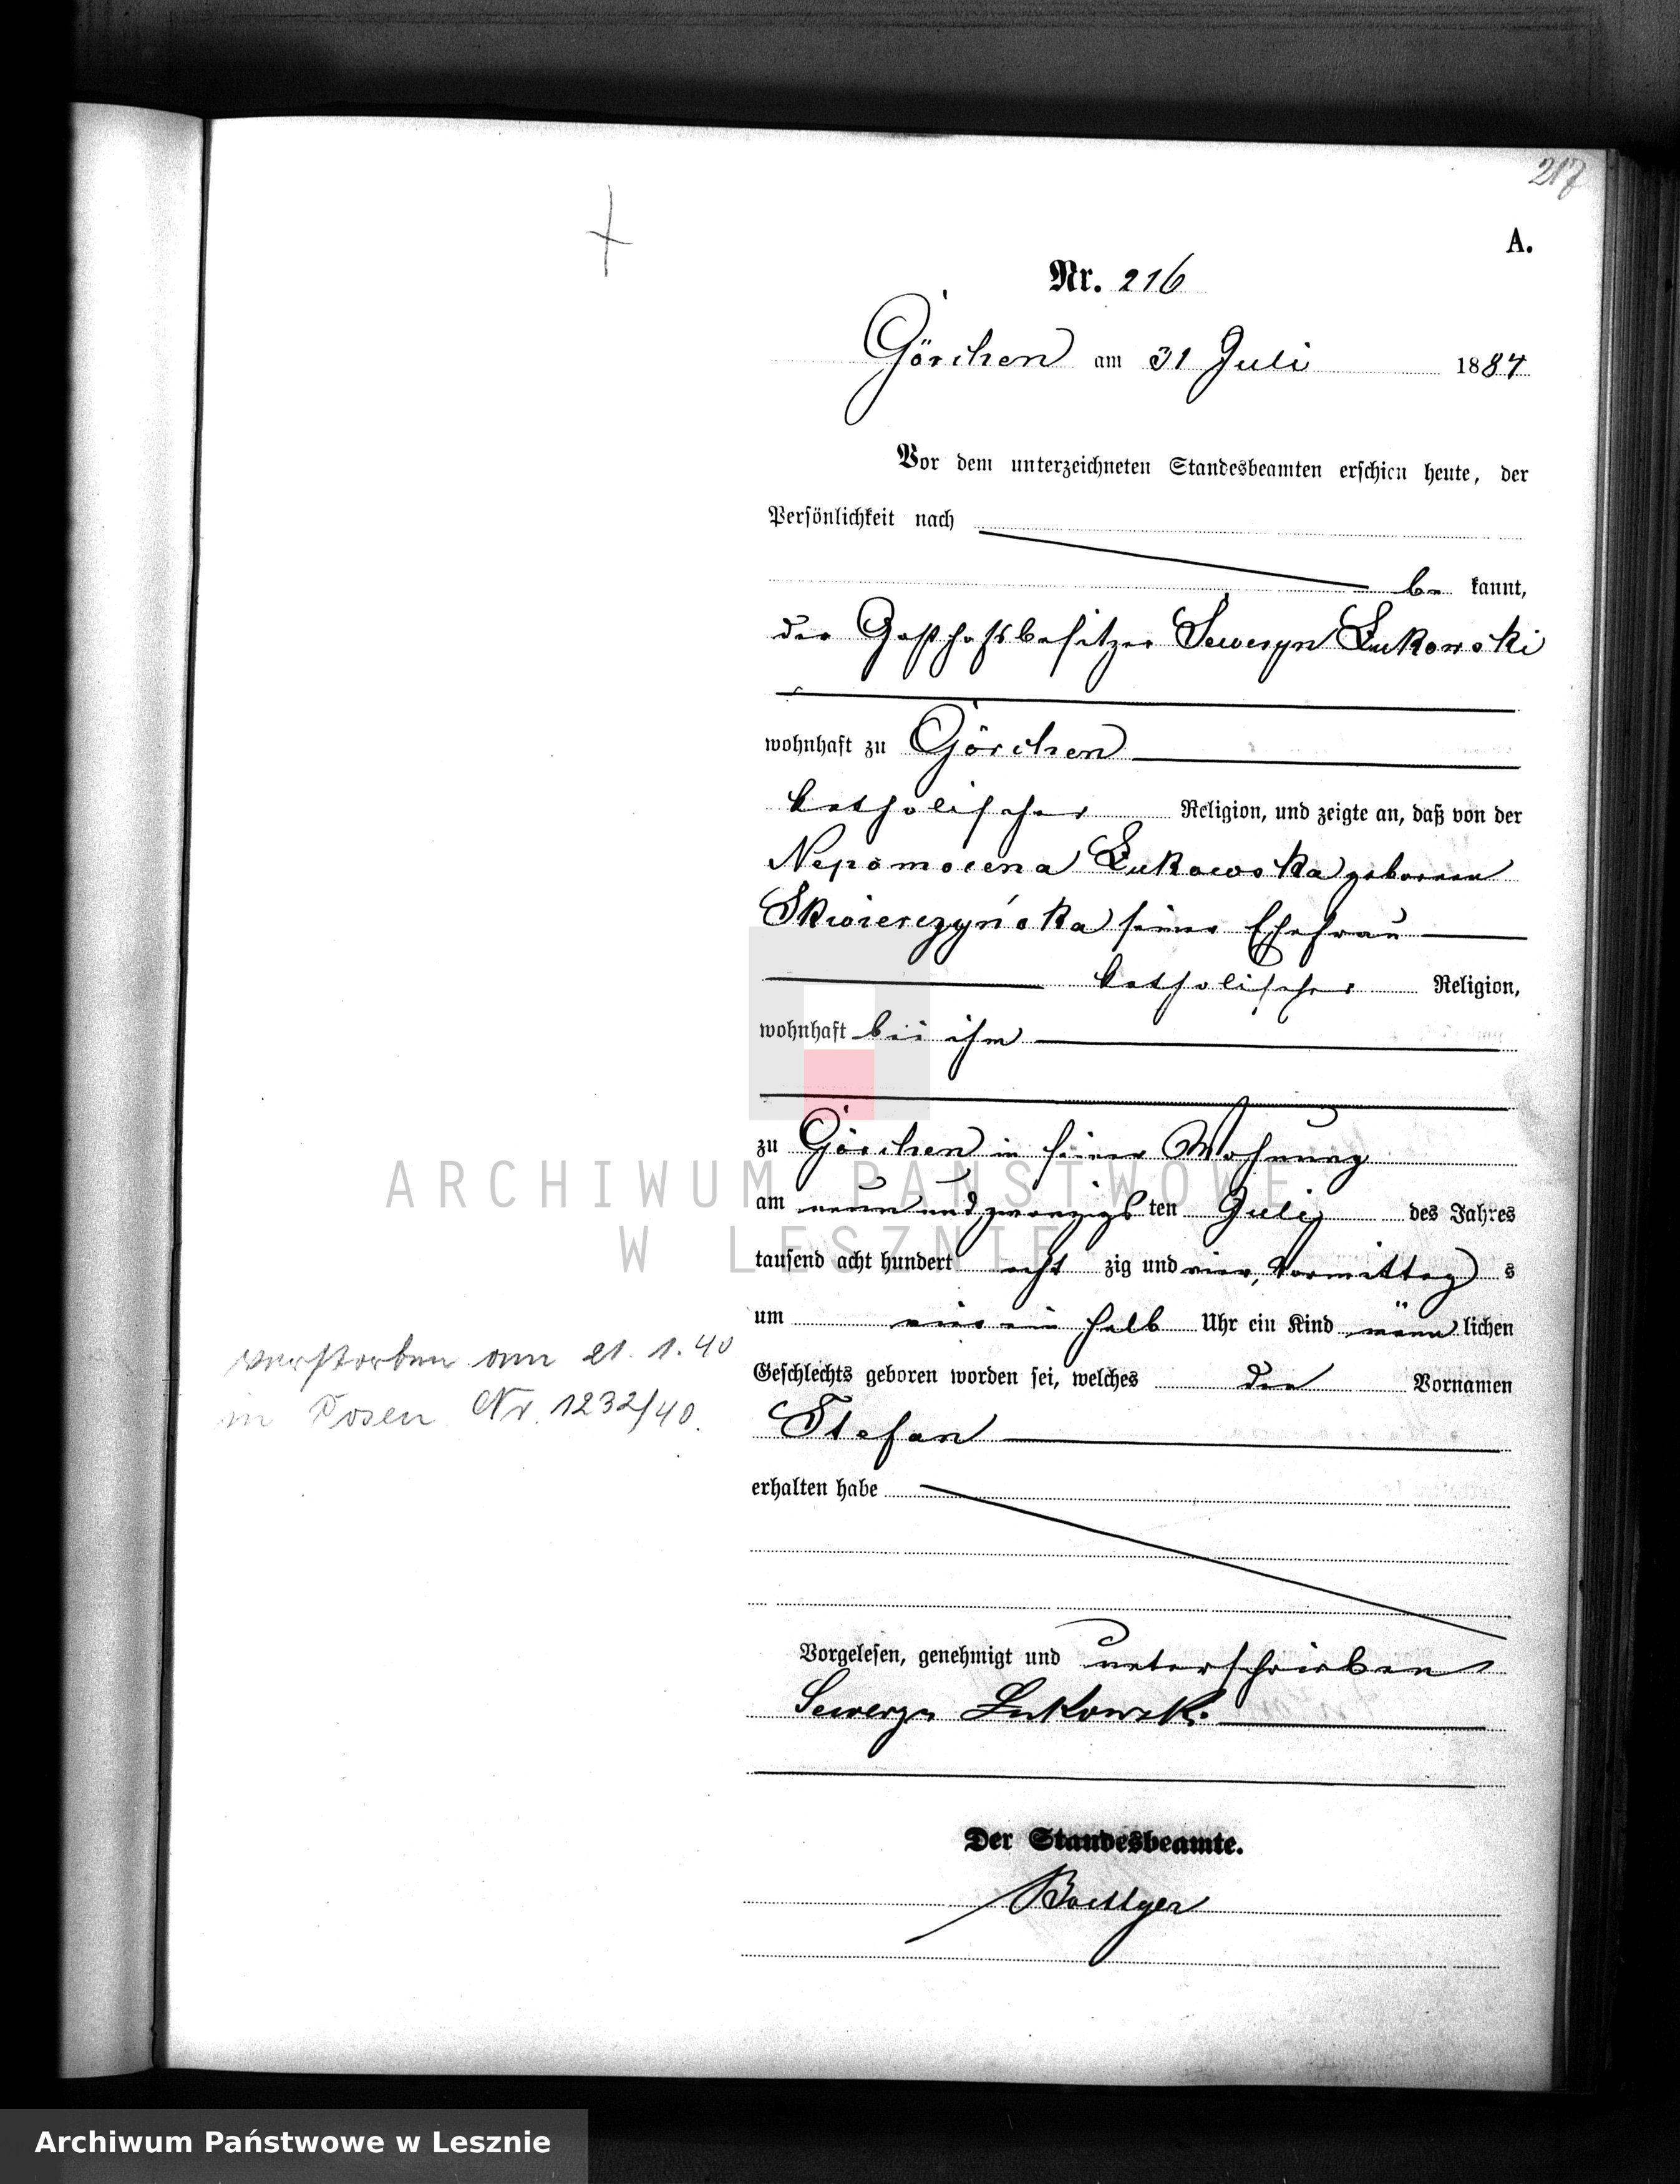 217
A.
Nr. 216
Görchen am 31 Juli 1884
Vor dem unterzeichneten Standesbeamten erschien heute, der
Persönlichkeit nach
be kannt,
der Gasthofsbesitzer Seweryn Łukowski
wohnhaft zu Görchen
katholischer Religion, und zeigte an, daß von der
Nepomocena Łukowska geborenen
Skwierczyńska seiner Ehefrau
katholischer Religion,
wohnhaft bei ihm
zu Görchen in seiner Wohnung
am neunundzwanzigsten Juli des Jahres
tausend acht hundert acht zig und vier, Vormittags
um vier ein halb Uhr ein Kind männlichen
Geschlechts geboren worden sei, welches den Vornamen
Stefan
erhalten habe
Vorgelesen, genehmigt und unterschrieben
Seweryn Łukowski
Der Standesbeamte.
Boettger
verstorben am 21. 1. 40
in Posen Nr. 1232/40.
ARCHIWUM PAŃSTWOWE
W LESZNIE
Archiwum Państwowe w Lesznie